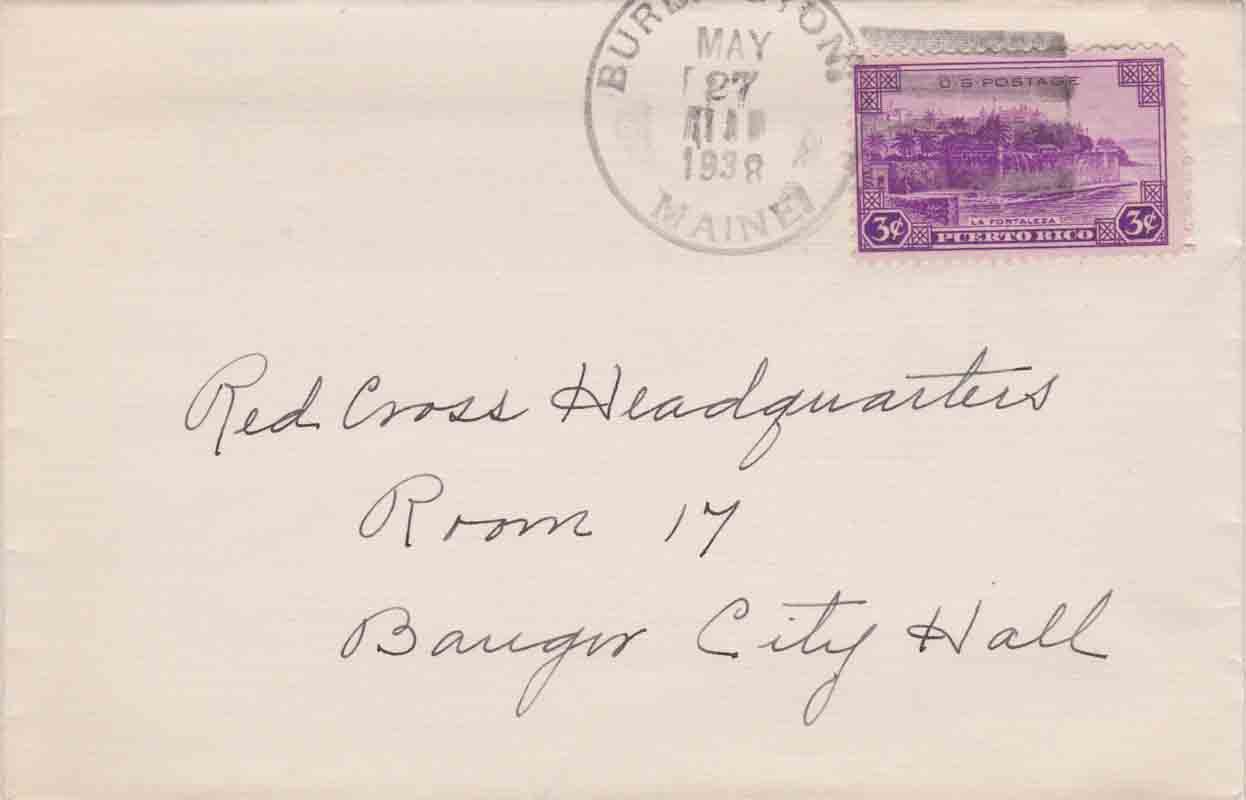 MAY
27
1938
MAINE
U·S·POSTAGE
LA FORTALEZA
3¢ PUERTO RICO 3¢
Red Cross Headquarters
Room 17
Bangor City Hall